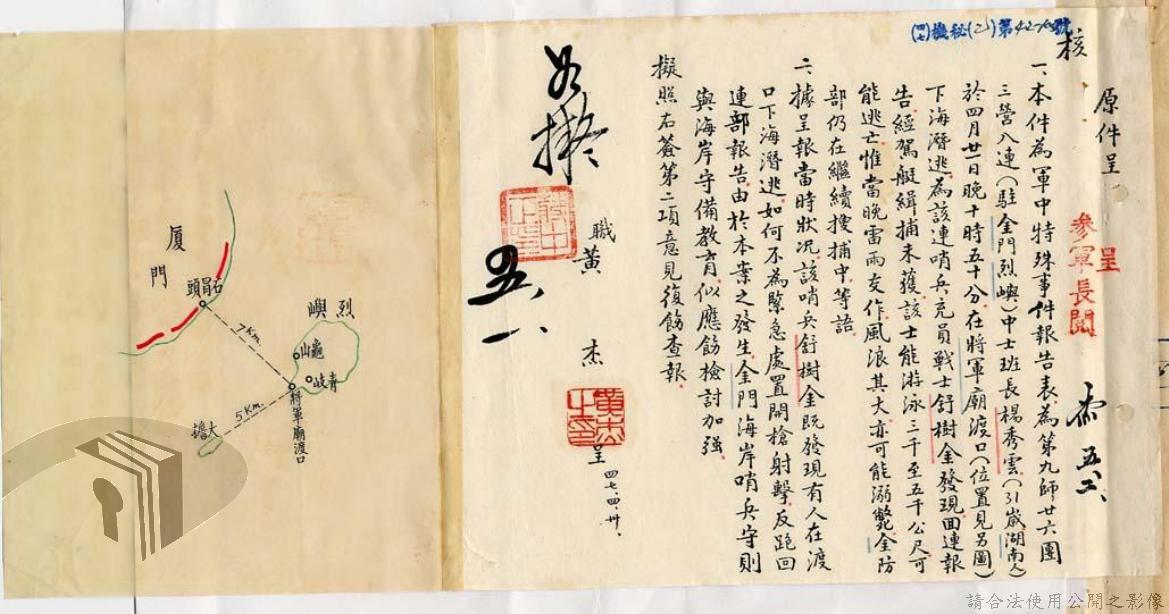 (四七)機秘(乙)第42-6號
核
原件呈
呈
參軍長閱
五.二.
一、本件為軍中特殊事件報告表為第九師廿六團
三營八連(駐金門烈嶼)中士班長楊秀雲(31歲湖南人)
於四月廿一日晚十時五十分在將軍廟渡口(位置見另圖)
下海潛逃為該連哨兵充員戰士舒樹金發現回連報
告經駕艇緝捕未獲該士能游泳三千至五千公尺可
能逃亡惟當晚雷雨交作風浪其大亦可能溺斃金防
部仍在繼續搜捕中等語
二、據呈報當時狀況該哨兵舒樹金既發現有人在渡
口下海潛逃如何不為緊急處置開槍射擊反跑回
連部報告由於本案之發生金門海岸哨兵守則
與海岸守備教育似應飭檢討加强
擬照右簽第二項意見復飭查報
職黃 杰
黃杰之印
呈
四七.四.卅.
如擬
蔣中正印
五、一、
烈嶼
龜山
青岐
將軍廟渡口
大擔
5Km.
7Km.
石胃頭
厦門
請合法使用公開之影像